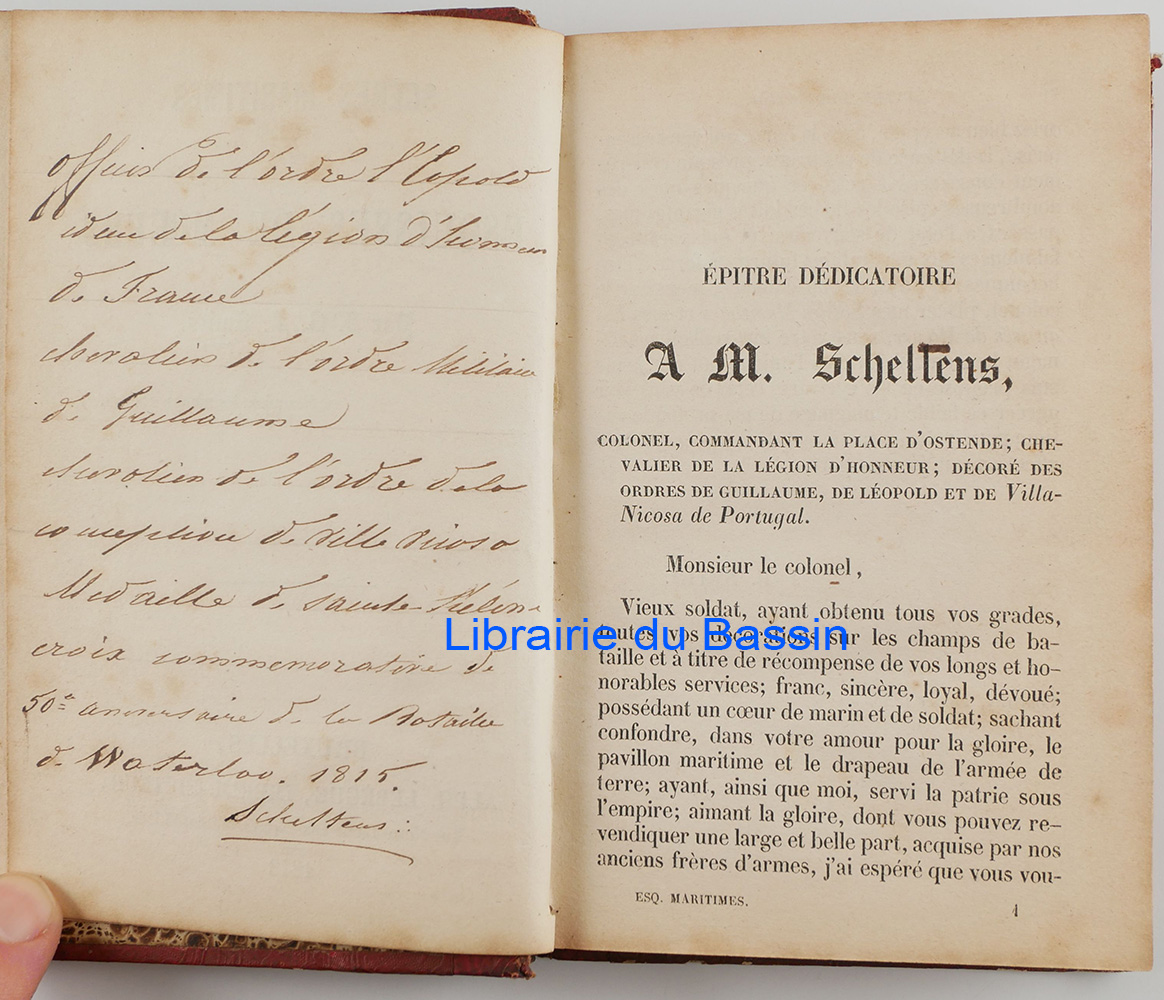 officier de l'ordre l'Eopold
idem de la légion d'honneur
de France
chevalier de l'ordre Militaire
de Guillaume
chevalier de l'ordre de la
conception de ville viciosa
Medaille de Sainte Hélène
croix commemorative de
50e aniversaire de la Bataille
de Waterloo. 1815.
Scheltens
ÉPITRE DÉDICATOIRE
A M. Scheltens,
COLONEL, COMMANDANT LA PLACE D'OSTENDE; CHE-
VALIER DE LA LÉGION D'HONNEUR; DÉCORÉ DES
ORDRES DE GUILLAUME, DE LÉOPOLD ET DE Villa-
Nicosa de Portugal.
Monsieur le colonel,
Vieux soldat, ayant obtenu tous vos grades,
toutes vos décorations sur les champs de ba-
taille et à titre de récompense de vos longs et ho-
norables services; franc, sincère, loyal, dévoué;
possédant un cœur de marin et de soldat; sachant
confondre, dans votre amour pour la gloire, le
pavillon maritime et le drapeau de l'armée de
terre; ayant, ainsi que moi, servi la patrie sous
l'empire; aimant la gloire, dont vous pouvez re-
vendiquer une large et belle part, acquise par nos
anciens frères d'armes, j'ai espéré que vous vou-
ESQ. MARITIMES.
1
Librairie du Bassin